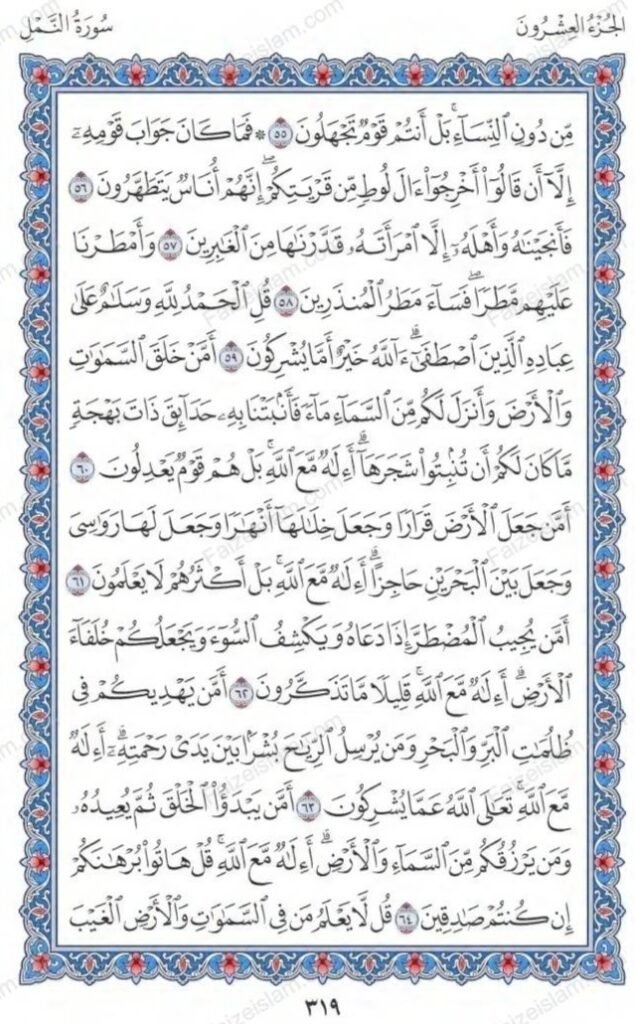 الجُزْءُ العِشْرُونَ
سُورَةُ النَّمْلِ
مِّن دُونِ ٱلنِّسَآءِۚ بَلْ أَنتُمْ قَوْمٌ تَجْهَلُونَ ٥٥ ۞ فَمَا كَانَ جَوَابَ قَوْمِهِۦٓ
إِلَّآ أَن قَالُوٓا۟ أَخْرِجُوٓا۟ ءَالَ لُوطٍ مِّن قَرْيَتِكُمْۖ إِنَّهُمْ أُنَاسٌ يَتَطَهَّرُونَ ٥٦
فَأَنجَيْنَٰهُ وَأَهْلَهُۥٓ إِلَّا ٱمْرَأَتَهُۥ قَدَّرْنَٰهَا مِنَ ٱلْغَٰبِرِينَ ٥٧ وَأَمْطَرْنَا
عَلَيْهِم مَّطَرًاۖ فَسَآءَ مَطَرُ ٱلْمُنذَرِينَ ٥٨ قُلِ ٱلْحَمْدُ لِلَّهِ وَسَلَٰمٌ عَلَىٰ
عِبَادِهِ ٱلَّذِينَ ٱصْطَفَىٰٓۗ ءَآللَّهُ خَيْرٌ أَمَّا يُشْرِكُونَ ٥٩ أَمَّنْ خَلَقَ ٱلسَّمَٰوَٰتِ
وَٱلْأَرْضَ وَأَنزَلَ لَكُم مِّنَ ٱلسَّمَآءِ مَآءً فَأَنۢبَتْنَا بِهِۦ حَدَآئِقَ ذَاتَ بَهْجَةٍ
مَّا كَانَ لَكُمْ أَن تُنۢبِتُوا۟ شَجَرَهَآۗ أَءِلَٰهٌ مَّعَ ٱللَّهِۚ بَلْ هُمْ قَوْمٌ يَعْدِلُونَ ٦٠
أَمَّن جَعَلَ ٱلْأَرْضَ قَرَارًا وَجَعَلَ خِلَٰلَهَآ أَنْهَٰرًا وَجَعَلَ لَهَا رَوَٰسِىَ
وَجَعَلَ بَيْنَ ٱلْبَحْرَيْنِ حَاجِزًاۗ أَءِلَٰهٌ مَّعَ ٱللَّهِۚ بَلْ أَكْثَرُهُمْ لَا يَعْلَمُونَ ٦١
أَمَّن يُجِيبُ ٱلْمُضْطَرَّ إِذَا دَعَاهُ وَيَكْشِفُ ٱلسُّوٓءَ وَيَجْعَلُكُمْ خُلَفَآءَ
ٱلْأَرْضِۗ أَءِلَٰهٌ مَّعَ ٱللَّهِۚ قَلِيلًا مَّا تَذَكَّرُونَ ٦٢ أَمَّن يَهْدِيكُمْ فِى
ظُلُمَٰتِ ٱلْبَرِّ وَٱلْبَحْرِ وَمَن يُرْسِلُ ٱلرِّيَٰحَ بُشْرًۢا بَيْنَ يَدَىْ رَحْمَتِهِۦٓۗ أَءِلَٰهٌ
مَّعَ ٱللَّهِۚ تَعَٰلَى ٱللَّهُ عَمَّا يُشْرِكُونَ ٦٣ أَمَّن يَبْدَؤُا۟ ٱلْخَلْقَ ثُمَّ يُعِيدُهُۥ
وَمَن يَرْزُقُكُم مِّنَ ٱلسَّمَآءِ وَٱلْأَرْضِۗ أَءِلَٰهٌ مَّعَ ٱللَّهِۚ قُلْ هَاتُوا۟ بُرْهَٰنَكُمْ
إِن كُنتُمْ صَٰدِقِينَ ٦٤ قُل لَّا يَعْلَمُ مَن فِى ٱلسَّمَٰوَٰتِ وَٱلْأَرْضِ ٱلْغَيْبَ
٣١٩
Faizeislam.com